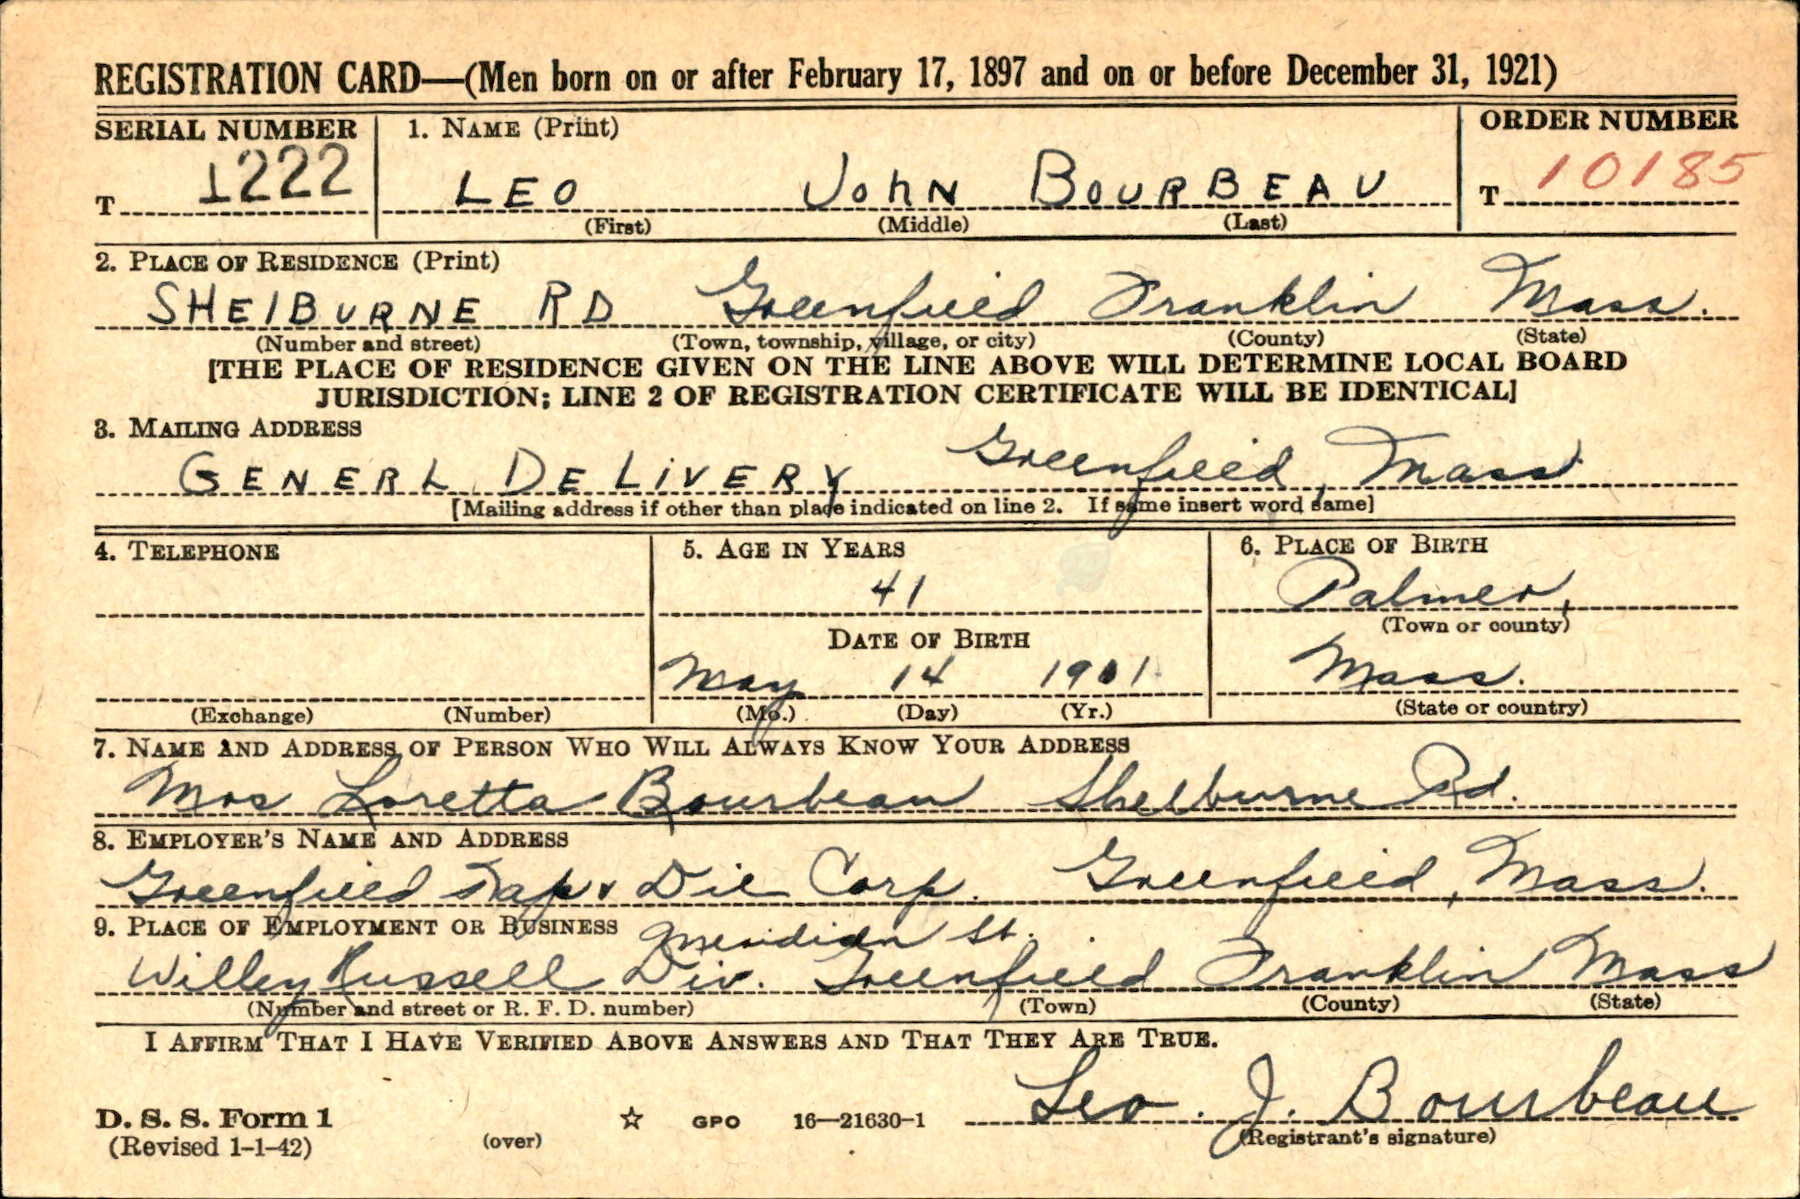 REGISTRATION CARD—(Men born on or after February 17, 1897 and on or before December 31, 1921)
SERIAL NUMBER 1. NAME (Print) ORDER NUMBER
T 1222 LEO JOhN BOURBEAU T 10185
(First) (Middle) (Last)
2. PLACE OF RESIDENCE (Print)
SHElBURNE RD Greenfield Franklin Mass.
(Number and street) (Town, township, village, or city) (County) (State)
[THE PLACE OF RESIDENCE GIVEN ON THE LINE ABOVE WILL DETERMINE LOCAL BOARD
JURISDICTION; LINE 2 OF REGISTRATION CERTIFICATE WILL BE IDENTICAL]
3. MAILING ADDRESS
GENERL DELIVERY Greenfield, Mass.
[Mailing address if other than place indicated on line 2. If same insert word same]
4. TELEPHONE 5. AGE IN YEARS 6. PLACE OF BIRTH
41 Palmer,
(Town or county)
DATE OF BIRTH
May 14 1901 Mass.
(Exchange) (Number) (Mo.) (Day) (Yr.) (State or country)
7. NAME AND ADDRESS OF PERSON WHO WILL ALWAYS KNOW YOUR ADDRESS
Mrs Loretta Bourbeau Shelburne Rd.
8. EMPLOYER'S NAME AND ADDRESS
Greenfield Tap & Die Corp. Greenfield, Mass.
9. PLACE OF EMPLOYMENT OR BUSINESS Meridian St.
Willey Russell Div. Greenfield Franklin Mass
(Number and street or R. F. D. number) (Town) (County) (State)
I AFFIRM THAT I HAVE VERIFIED ABOVE ANSWERS AND THAT THEY ARE TRUE.
Leo. J. Bourbeau
D. S. S. Form 1
(Revised 1-1-42) (over) ☆ GPO 16—21630-1 (Registrant's signature)